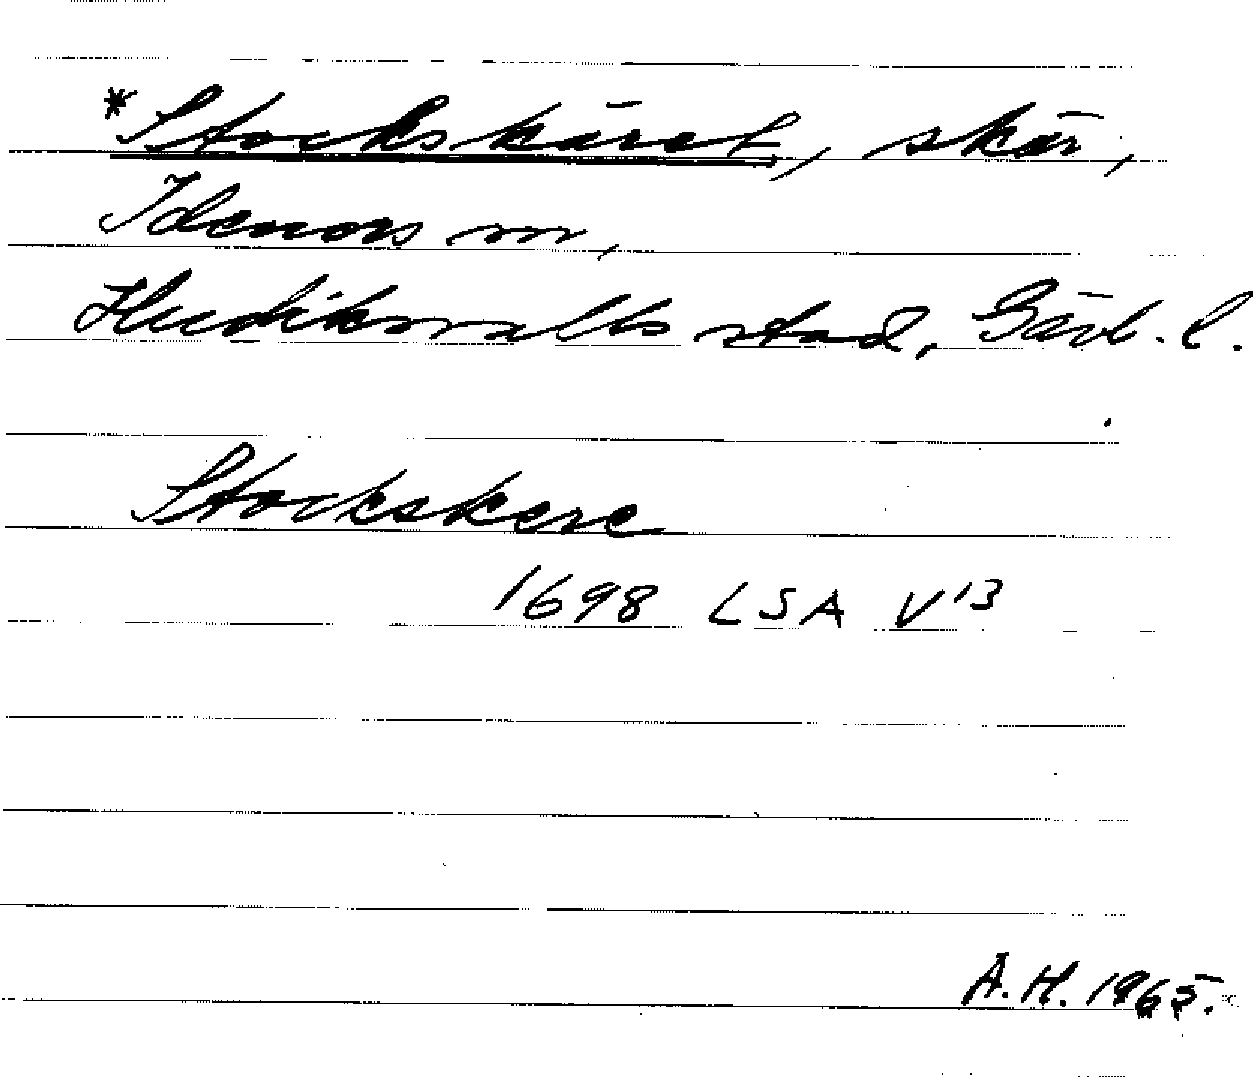 *Stockskäret, skär,
Idenors sn,
Hudiksvalls stad, Gävl. l.
Stockskere
1698 LSA V13
A.H. 1965.